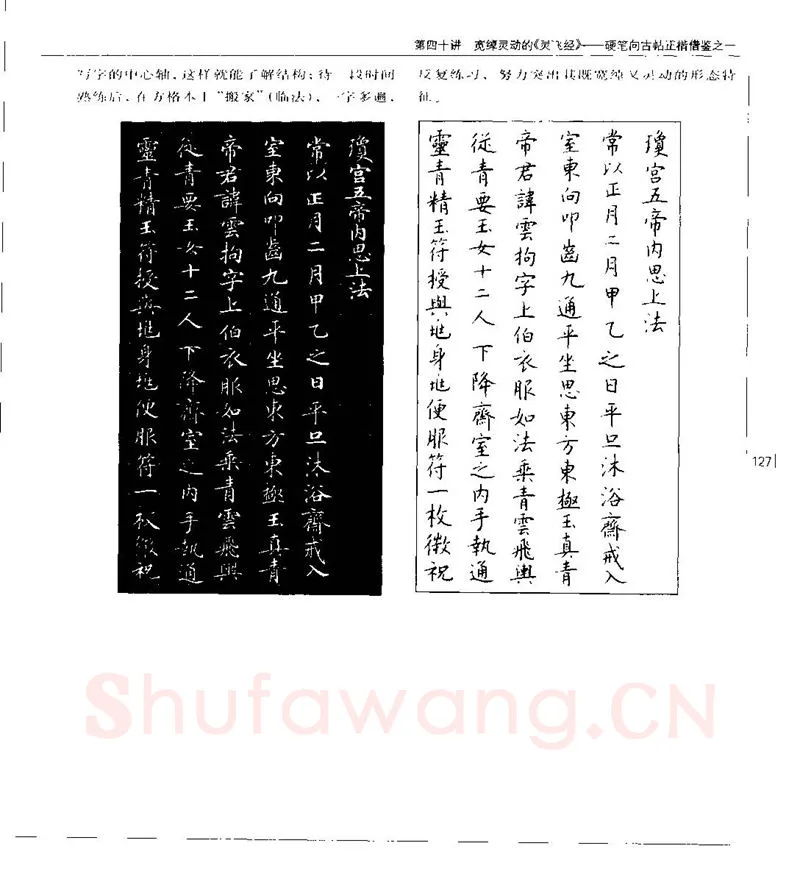 第四十讲 宽绰灵动的《灵飞经》——硬笔向古帖正楷借鉴之一
写字的中心轴,这样就能了解结构;待一段时间
熟练后,在方格本上“搬家”(临法),一字多遍,
反复练习,努力突出其既宽绰又灵动的形态特
征。
瓊宫五帝内思上法
常以正月二月甲乙之日平旦沐浴齋戒入
室東向叩齒九通平坐思東方東極玉真青
帝君諱雲拘字上伯衣服如法乘青雲飛輿
從青要玉女十二人下降齋室之内手執通
靈青精玉符授與地身地便服符一枚微祝
瓊宫五帝内思上法
常以正月二月甲乙之日平旦沐浴齋戒入
室東向叩齒九通平坐思東方東極玉真青
帝君諱雲拘字上伯衣服如法乘青雲飛輿
從青要玉女十二人下降齋室之内手執通
靈青精玉符授與地身地便服符一枚微祝
127
Shufawang.CN